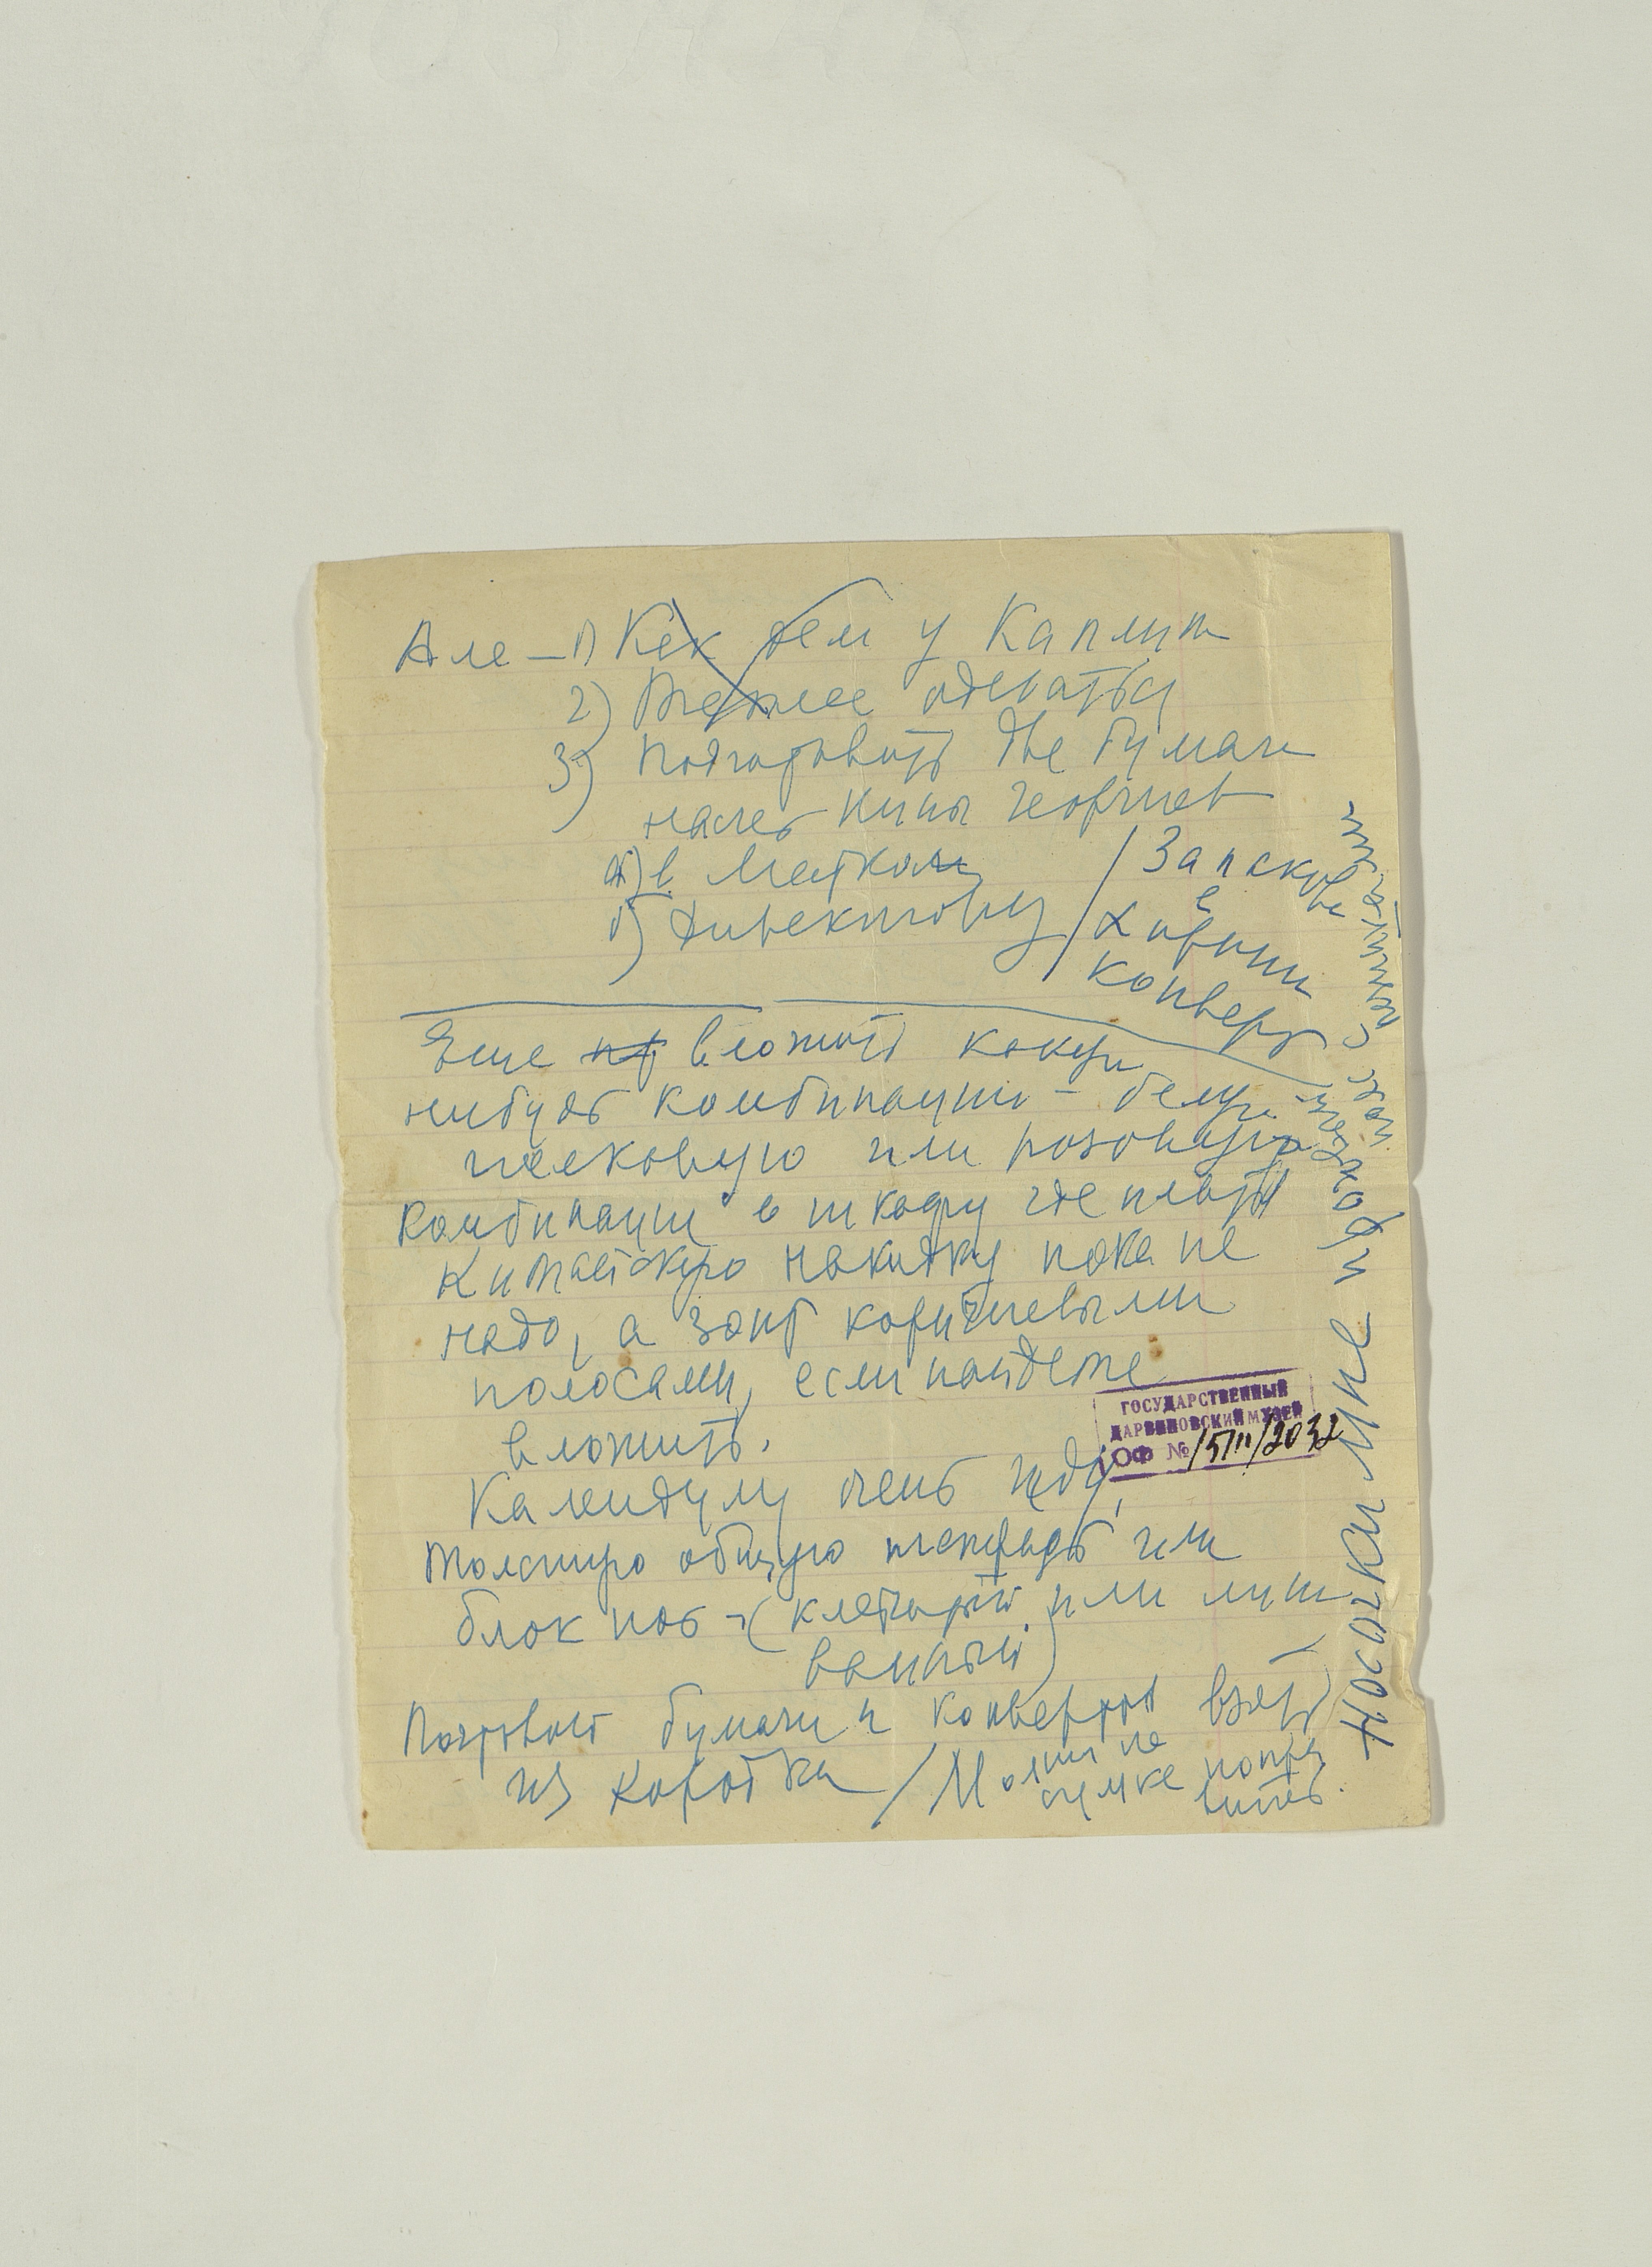 Але – 1) Кекс у Каплин
2) Теплее одеваться
3) Подготовить две бумаги
насчет Нины Георгиев
а) в Местком
б) Директору
/ За пскуве
в
конверт
Еще вложить какую
нибудь комбинации – белую
шелковую или розовую
Комбинации в шкафу где платья
Китайскую накидку пока не
надо, а зонт коричневыми
полосами, если найдете
вложить.
Календулу очень жду,
Толстую общую тетрадь или
блок нот – (клетчатый или лино
ванный)
Почтовой бумаги и конвертов взять
из коробки / Молнии на
сумке попра
вить.
Носочки мне нужны
ГОСУДАРСТВЕННЫЙ
ДАРВИНОВСКИЙ МУЗЕЙ
ОФ № 15111/2032